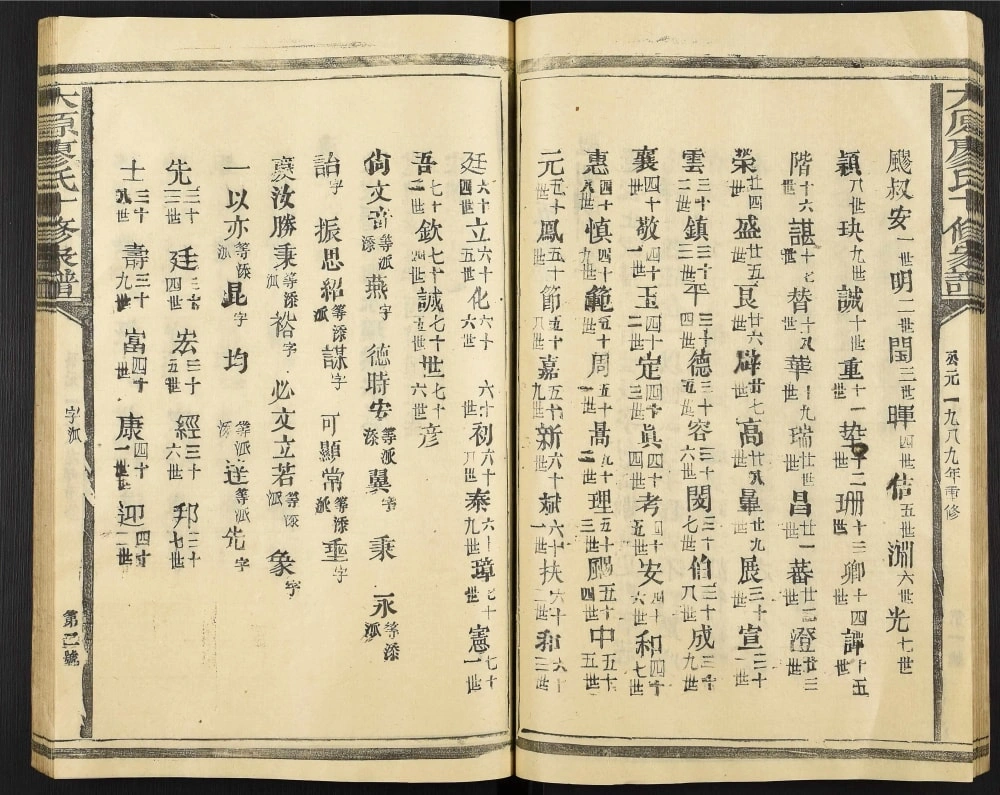 太原廖氏十修家譜
公元一九八九年重修
颺叔安一世明二世閏三世暉四世佶五世淵六世光七世
穎八世玦九世誠十世重十一世塾十二世珊十三世卿十四世諢十五世
階十六世諶十七世替十八世華十九世瑞二十世昌廿一世蕃廿二世澄廿三世
榮廿四世盛廿五世良廿六世辟廿七世高廿八世暈廿九世展三十世宣三十一世
雲三十二世鎮三十三世平三十四世德三十五世容三十六世閔三十七世伯三十八世成三十九世
襄四十世敬四十一世玉四十二世定四十三世眞四十四世考四十五世安四十六世和四十七世
惠四十八世慎四十九世範五十世周五十一世暠五十二世理五十三世颺五十四世中五十五世
元五十六世鳳五十七世節五十八世嘉五十九世新六十世斌六十一世扶六十二世和六十三世
廷六十四世立六十五世化六十六世 六十七世初六十八世泰六十九世璋七十世憲七十一世
吾七十二世欽七十三世誠七十四世世七十五世彦七十六世
尙文音等派添燕字 德時安等派添翼字 秉 永等添派
詒字 振思紹等添派謀字 可顯常等添派垂字
慶汝勝秉等添派裕字 必文立若等添派 象字
一以亦等添派昆字 均 等派添 逹等派添先字
先三十三世廷三十四世宏三十五世經三十六世邦三十七世
士三十八世壽三十九世富四十世康四十一世迎四十二世
太原廖氏十修家譜
字派
第二號